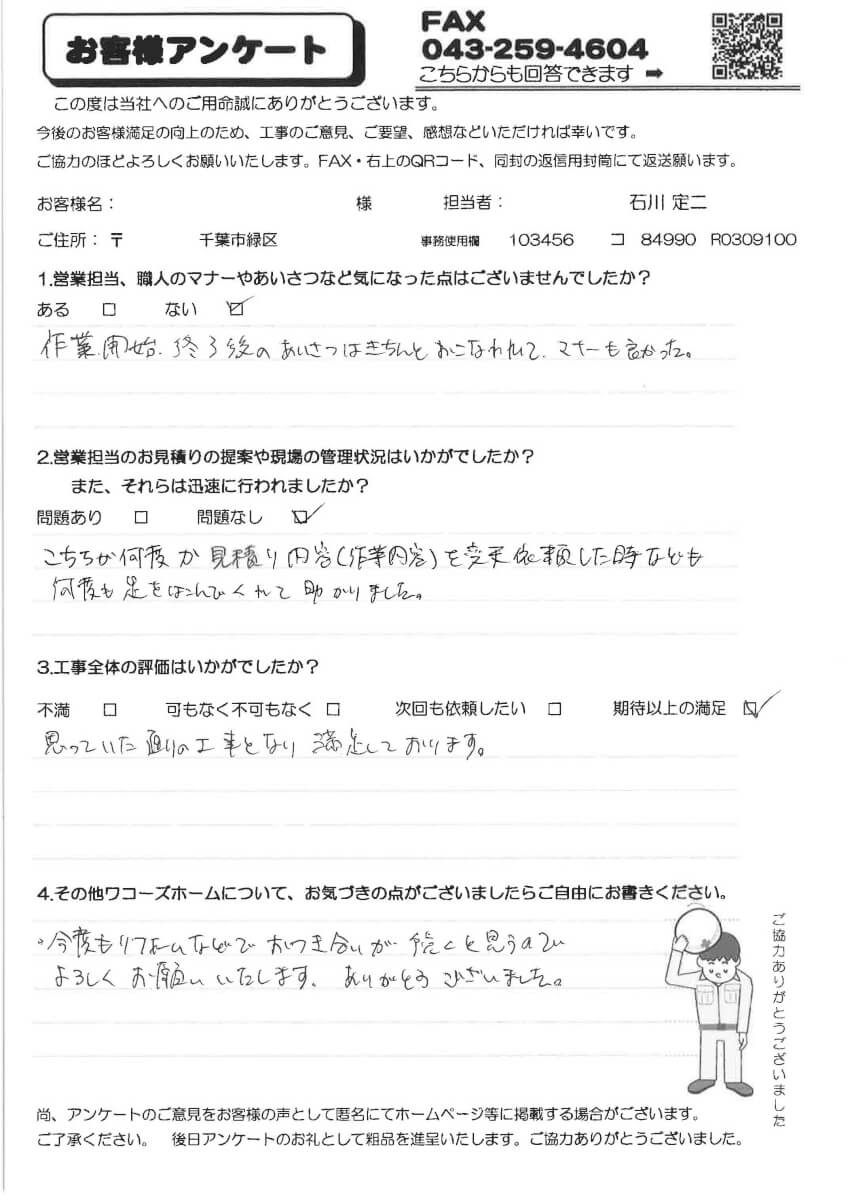 お客様アンケート
FAX
043-259-4604
こちらからも回答できます ➡
この度は当社へのご用命誠にありがとうございます。
今後のお客様満足の向上のため、工事のご意見、ご要望、感想などいただければ幸いです。
ご協力のほどよろしくお願いいたします。FAX・右上のQRコード、同封の返信用封筒にて返送願います。
お客様名： 様 担当者： 石川 定二
ご住所：〒 千葉市緑区 事務使用欄 103456 コ 84990 R0309100
1.営業担当、職人のマナーやあいさつなど気になった点はございませんでしたか？
ある □ ない ☑
作業開始、終了後のあいさつはきちんとおこなわれて、マナーも良かった。
2.営業担当のお見積りの提案や現場の管理状況はいかがでしたか？
また、それらは迅速に行われましたか？
問題あり □ 問題なし ☑
こちらが何度か見積り内容(作業内容)を変更依頼した時なども
何度も足をはこんでくれて助かりました。
3.工事全体の評価はいかがでしたか？
不満 □ 可もなく不可もなく □ 次回も依頼したい □ 期待以上の満足 ☑
思っていた通りの工事となり満足しております。
4.その他ワコーズホームについて、お気づきの点がございましたらご自由にお書きください。
。今度もリフォームなどでおつき合いが続くと思うので
よろしくお願いいたします。ありがとうございました。
ご協力ありがとうございました
尚、アンケートのご意見をお客様の声として匿名にてホームページ等に掲載する場合がございます。
ご了承ください。 後日アンケートのお礼として粗品を進呈いたします。ご協力ありがとうございました。